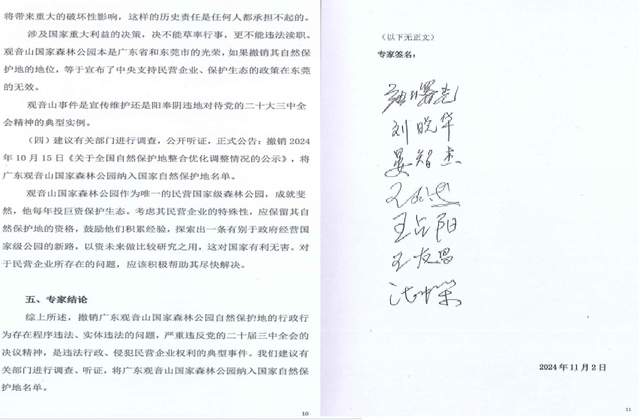 将带来重大的破坏性影响，这样的历史责任是任何人都承担不起的。
涉及国家重大利益的决策，决不能草率行事，更不能违法渎职。
观音山国家森林公园本是广东省和东莞市的光荣，如果撤销其自然保
护地的地位，等于宣布了中央支持民营企业、保护生态的政策在东莞
的无效。
观音山事件是宣传维护还是阳奉阴违地对待党的二十大三中全
会精神的典型实例。
（四）建议有关部门进行调查，公开听证，正式公告：撤销 2024
年 10 月 15 日《关于全国自然保护地整合优化调整情况的公示》，将
广东观音山国家森林公园纳入国家自然保护地名单。
观音山国家森林公园作为唯一的民营国家级森林公园，成就斐
然，他每年投巨资保护生态。考虑其民营企业的特殊性，应保留其自
然保护地的资格，鼓励他们积累经验，探索出一条有别于政府经营国
家级公园的新路，以资未来做比较研究之用，这对国家有利无害。对
于民营企业所存在的问题，应该积极帮助其尽快解决。
五、专家结论
综上所述，撤销广东观音山国家森林公园自然保护地的行政行
为存在程序违法、实体违法的问题，严重违反党的二十届三中全会的
决议精神，是违法行政、侵犯民营企业权利的典型事件。我们建议有
关部门进行调查、听证，将广东观音山国家森林公园纳入国家自然保
护地名单。
10
（以下无正文）
专家签名：
刘晓华
晏智杰
王占阳
2024 年 11 月 2 日
11